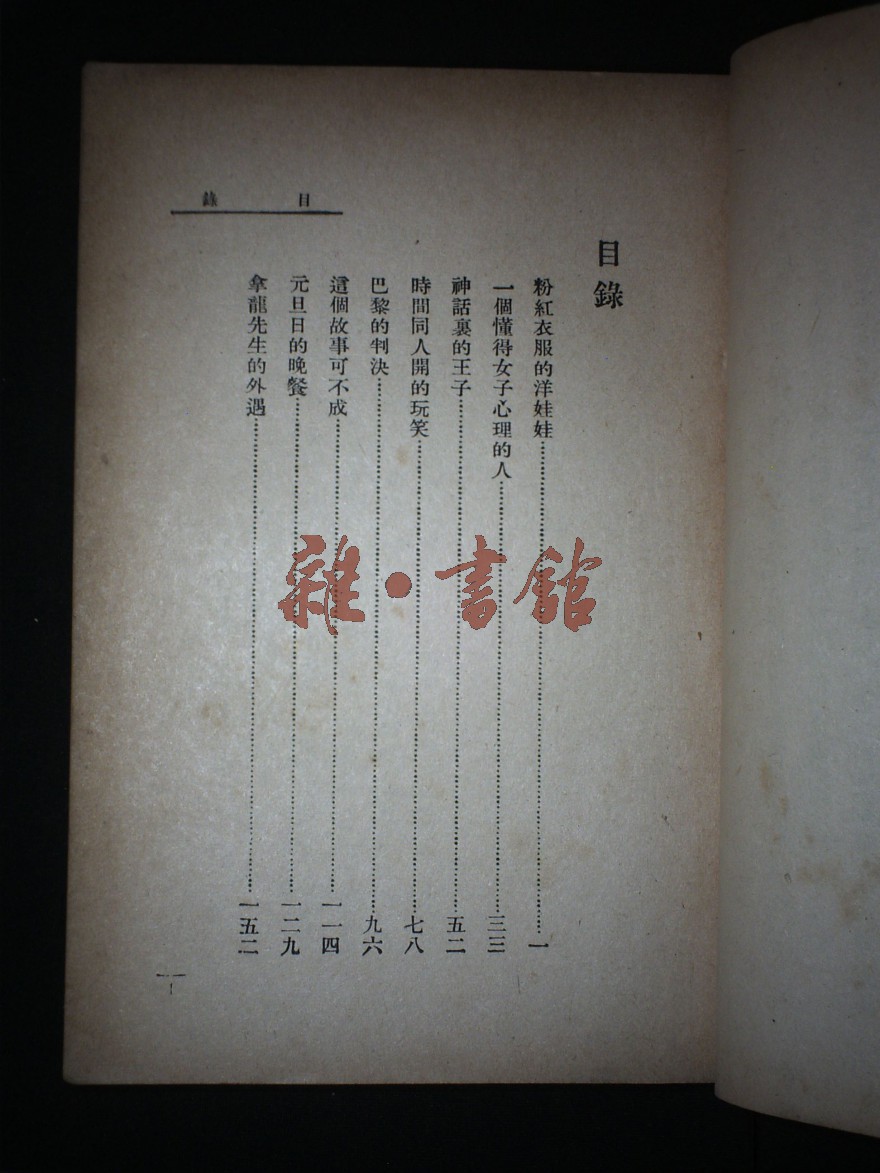 目錄
目錄
粉紅衣服的洋娃娃……一
一個懂得女子心理的人……三三
神話裏的王子……五二
時間同人開的玩笑……七八
巴黎的判決……九六
這個故事可不成……一一四
元旦日的晚餐……一二九
拿龍先生的外遇……一五二
一
雜·書館